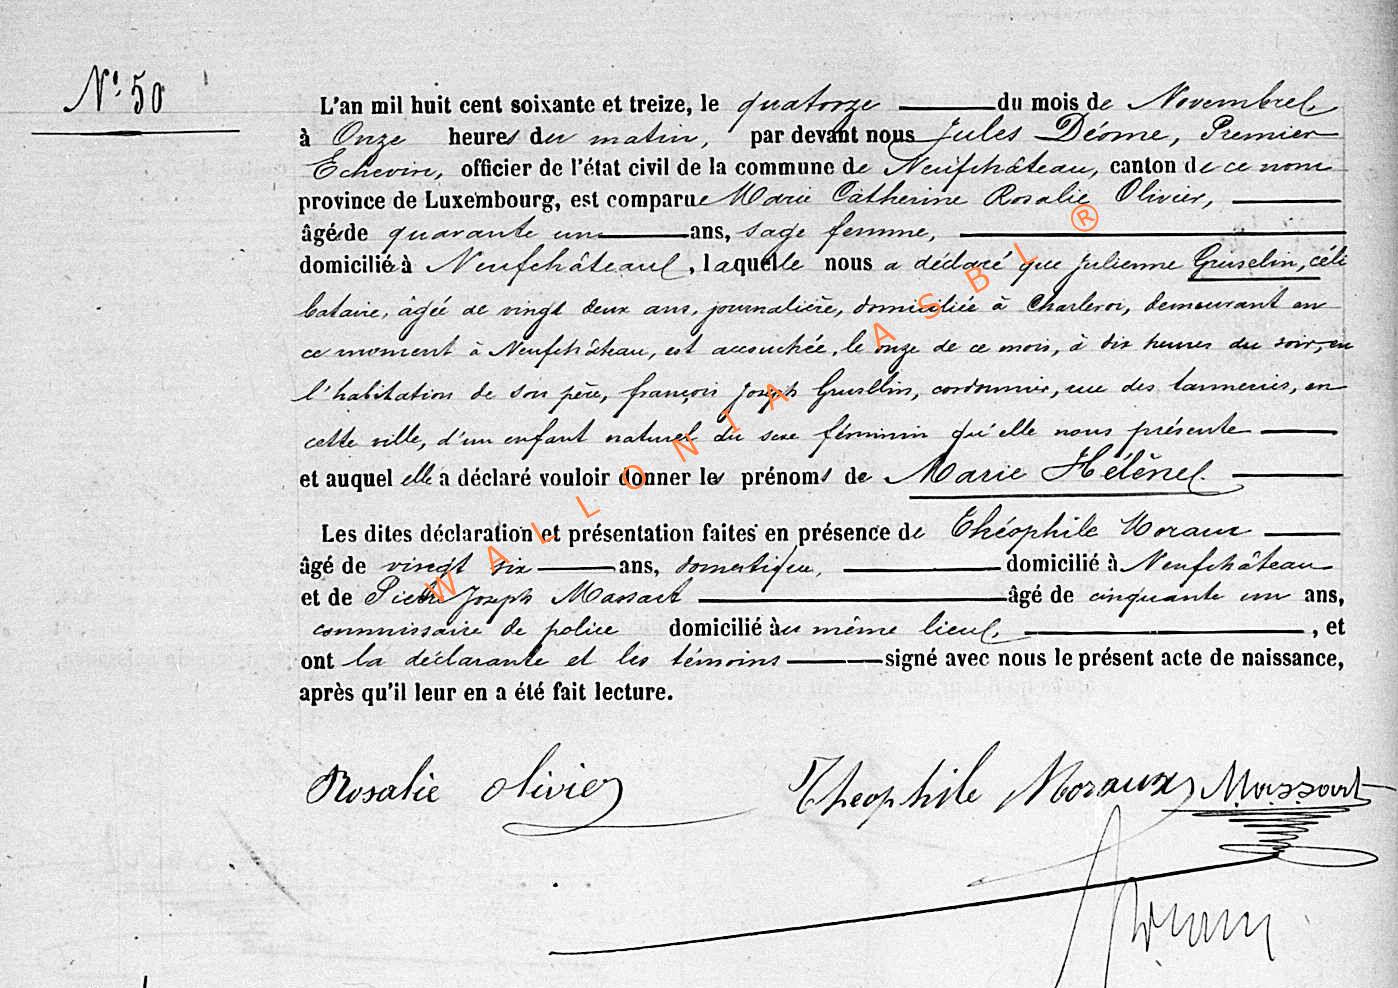 N° 50
L'an mil huit cent soixante et treize, le quatorze du mois de Novembre
à Onze heures du matin, par devant nous Jules Déome, Premier
Echevin, officier de l'état civil de la commune de Neufchâteau, canton de ce nom
province de Luxembourg, est comparue Marie Catherine Rosalie Olivier,
âgée de quarante un ans, sage femme,
domiciliée à Neufchâteau, laquelle nous a déclaré que Julienne Gruselin, céli
bataire, âgée de vingt deux ans, journalière, domiciliée à Charleroi, demeurant en
ce moment à Neufchâteau, est accouchée, le onze de ce mois, à dix heures du soir, en
l'habitation de son père, françois Joseph Gruselin, cordonnier, rue des tanneries, en
cette ville, d'un enfant naturel du sexe féminin qu'elle nous présente
et auquel elle a déclaré vouloir donner les prénoms de Marie Hélène.
Les dites déclaration et présentation faites en présence de Théophile Moraux
âgé de vingt six ans, domestique, domicilié à Neufchâteau
et de Pierre Joseph Massart âgé de cinquante un ans,
commissaire de police domicilié au même lieu, , et
ont la déclarante et les témoins signé avec nous le présent acte de naissance,
après qu'il leur en a été fait lecture.
Rosalie Olivier Théophile Moraux Massart
WALLONIA ASBL ®